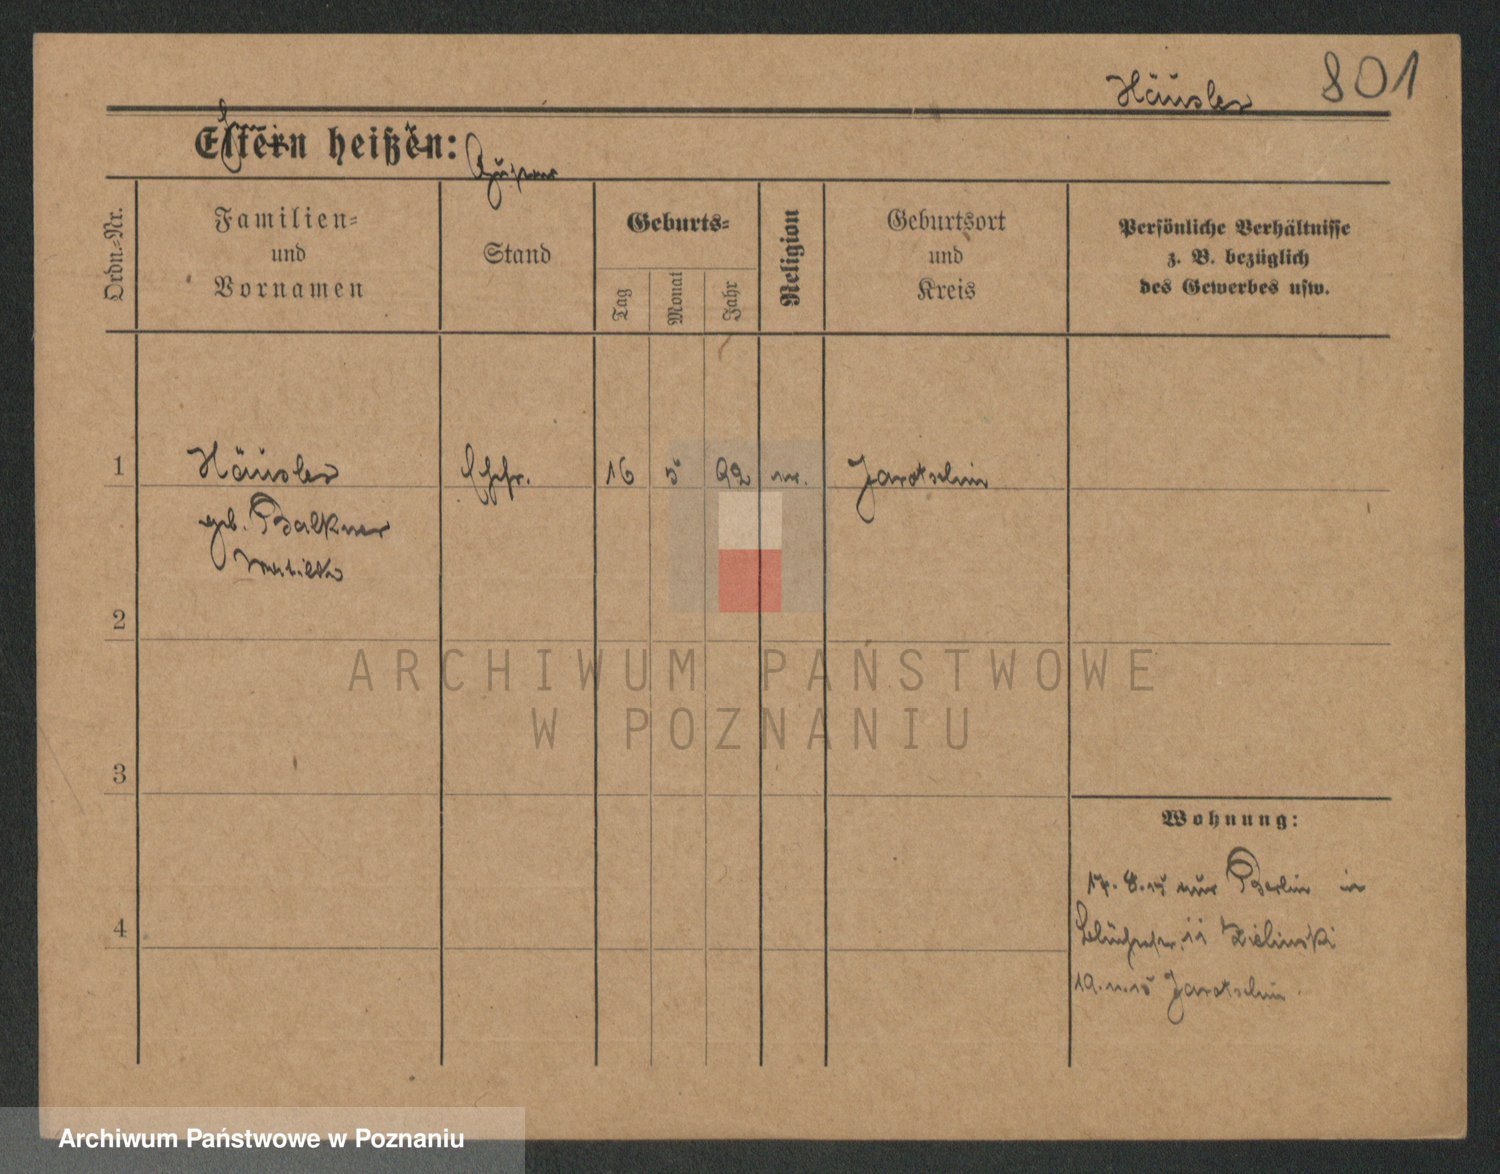 Häusler 801
Eltern heißen:
Gustav
Ordn.=Nr.
Familien=
und
Vornamen
Stand
Geburts=
Tag
Monat
Jahr
Religion
Geburtsort
und
Kreis
Persönliche Verhältnisse
z. B. bezüglich
des Gewerbes usw.
1 Häusler Ehefr. 16 5 92 Jarotschin
geb. Balkner
2
ARCHIWUM PAŃSTWOWE
W POZNANIU
3
Wohnung:
17. 8. 15 Berlin in
4 11 Zielinski
19. 11. 15 Jarotschin
Archiwum Państwowe w Poznaniu